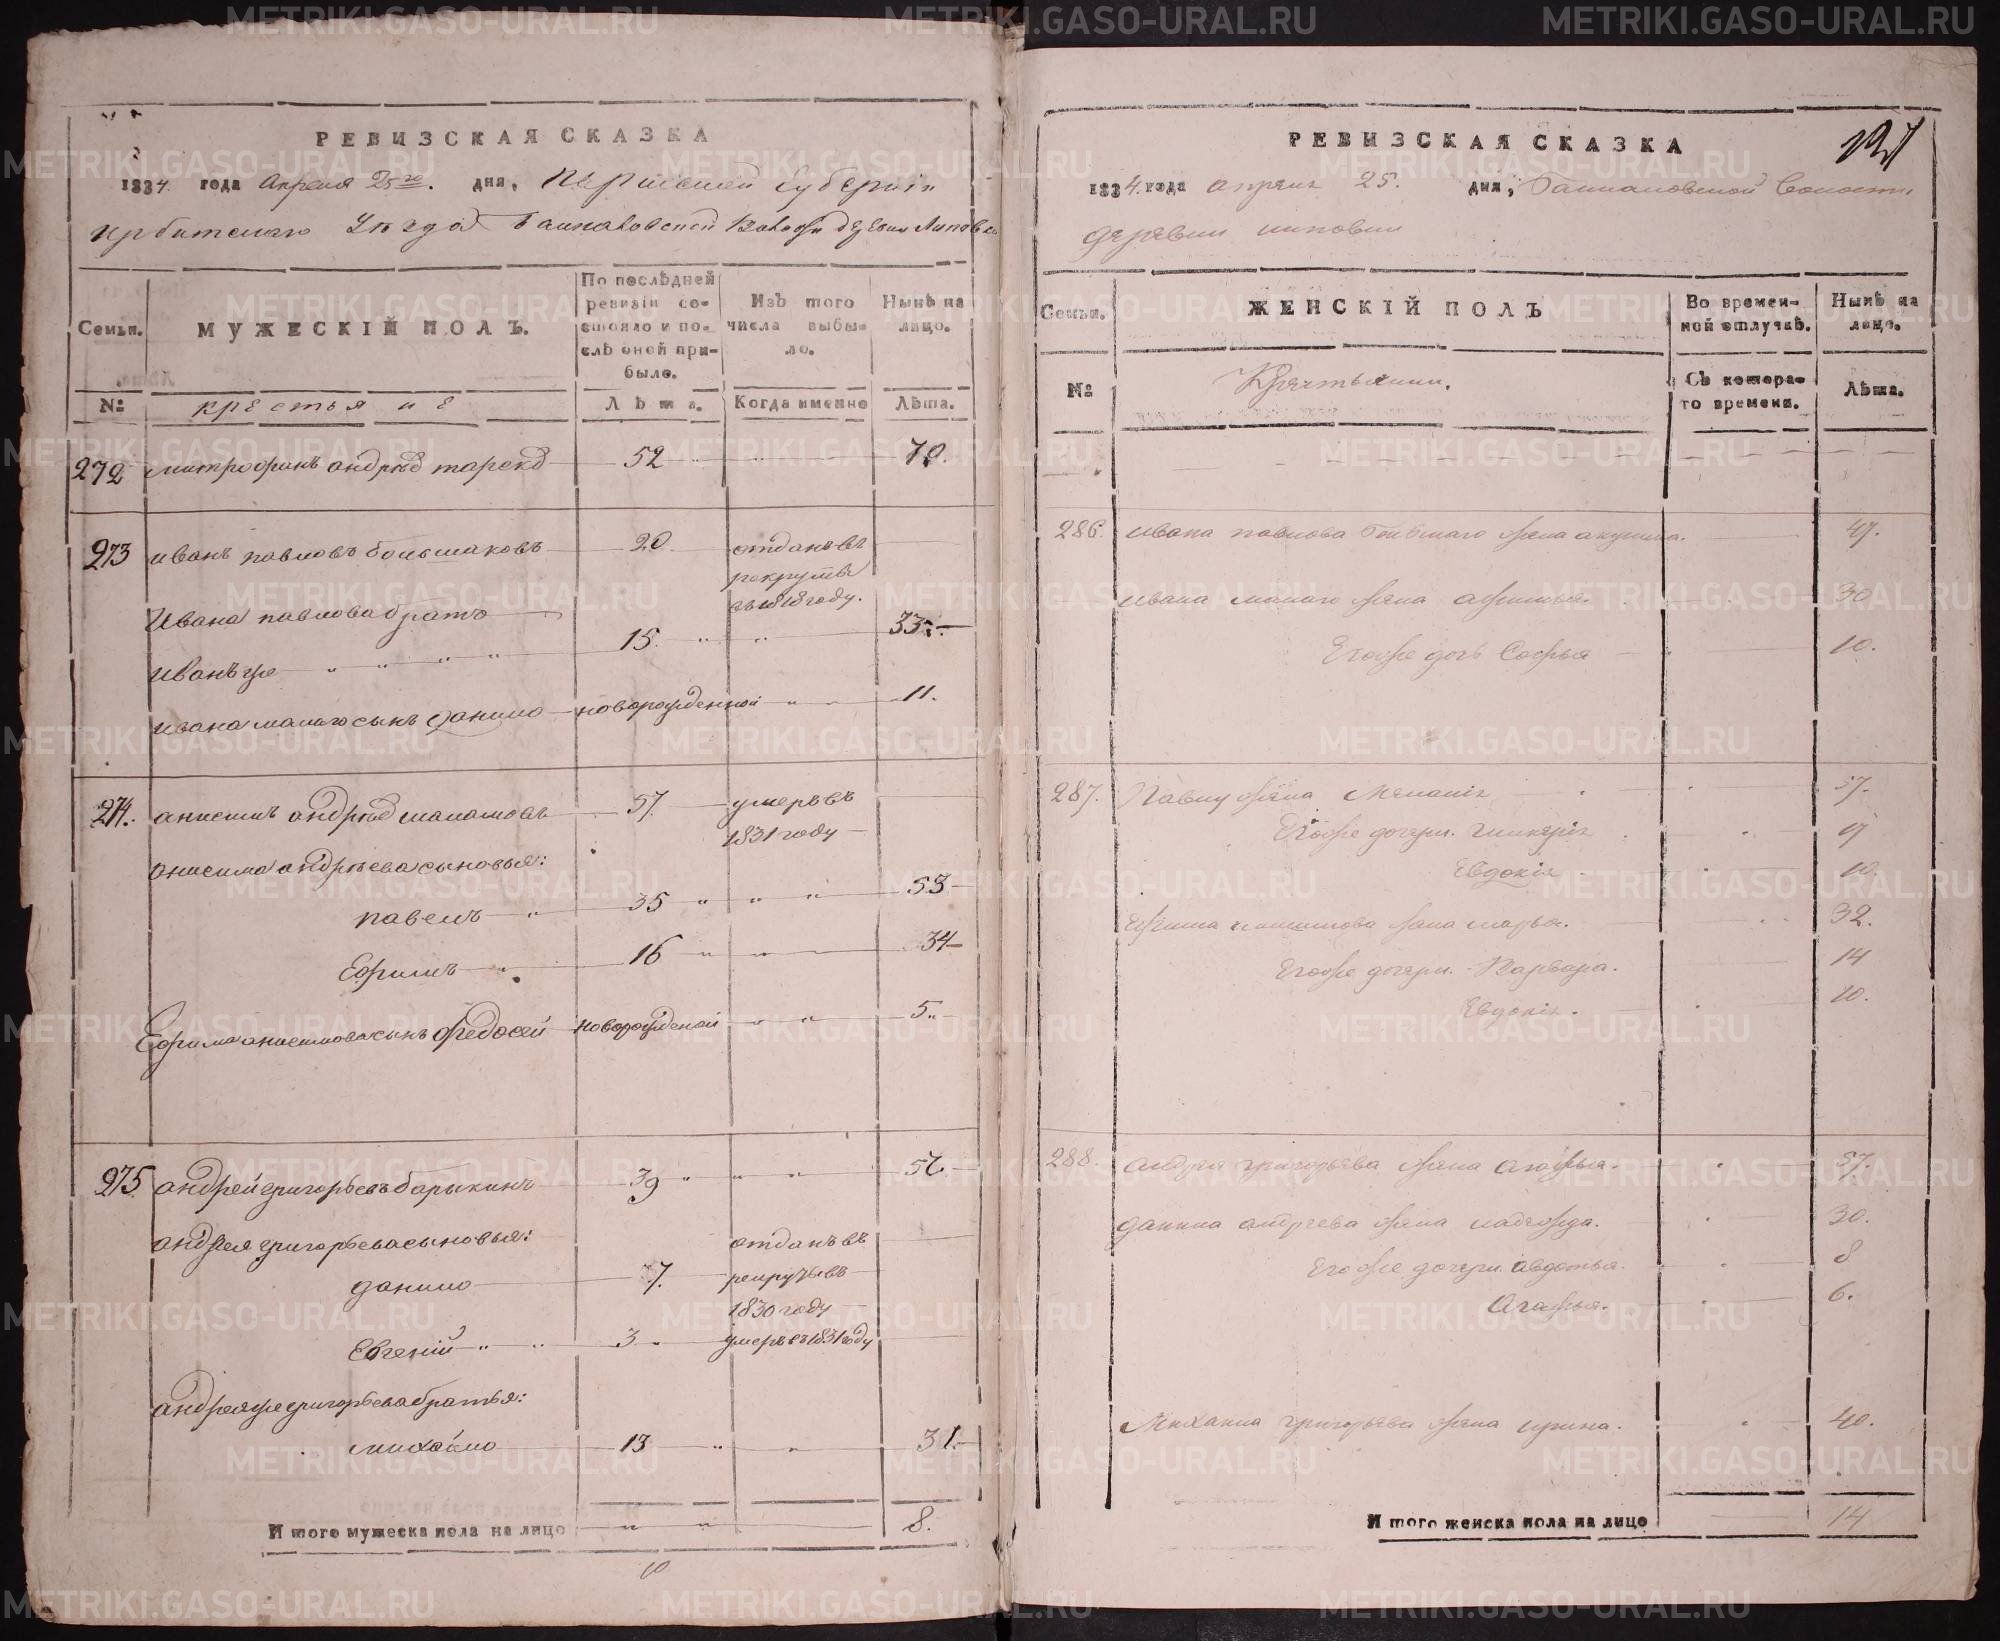 РЕВИЗСКАЯ СКАЗКА
1834. года Апреля 25го. дня, Пермской Губернiи
Ирбитскаго Уезда волости деревни Липовки
Семьи. МУЖЕСКIЙ ПОЛЪ. По послѣдней ревизiи состояло и послѣ оной прибыло. Изъ того числа выбыло. Нынѣ на лицо.
№ крестьяне Лѣта. Когда именно Лѣта.
272 митрофанъ андрѣв 52 70.
273 иванъ павловъ большаковъ 20 отданъ въ рекруты въ 1818 году.
Ивана павлова братъ
иванъ же 15. 33.
ивана малаго сынъ данило новорожденной 11.
274. анисимъ андрѣв шаламовъ 57. умеръ въ 1831 году
анисима андрѣева сыновья:
павелъ 35 53
Ефимъ 16 34
Ефима анисимова сынъ Федосей новорожденой 5
275. андрей григорьевъ барыкинъ 39 57.
андрея григорьева сыновья:
данило 7. отданъ въ рекруты въ 1830 году
Евгенiй 3 умеръ въ 1831 году
андрея же григорьева братья:
михайло 13 31.
И того мужеска пола на лицо 8.
РЕВИЗСКАЯ СКАЗКА
1834. года апреля 25. дня, волости
деревни липовки
Семьи. ЖЕНСКIЙ ПОЛЪ Во временной отлучкѣ. Нынѣ на лицо.
№ Съ котораго времени. Лѣта.
286. ивана павлова жена акулина.
ивана малаго жена афимья. 30
Егоже дочь Софья 10.
287. Павлу жена Меланiя 57.
Егоже дочери. Гликерiя
Евдокiя 10.
Ефима анисимова жена марья. 32.
Егоже дочери. Варвара. 14
Евдокiя. 10.
288. андрея григорьева жена агафья. 57.
данила андреева жена надежда. 30.
Егоже дочери. авдотья. 8
Агафья. 6.
Михаила григорьева жена ирина. 40.
И того женска пола на лицо 14
METRIKI.GASO-URAL.RU